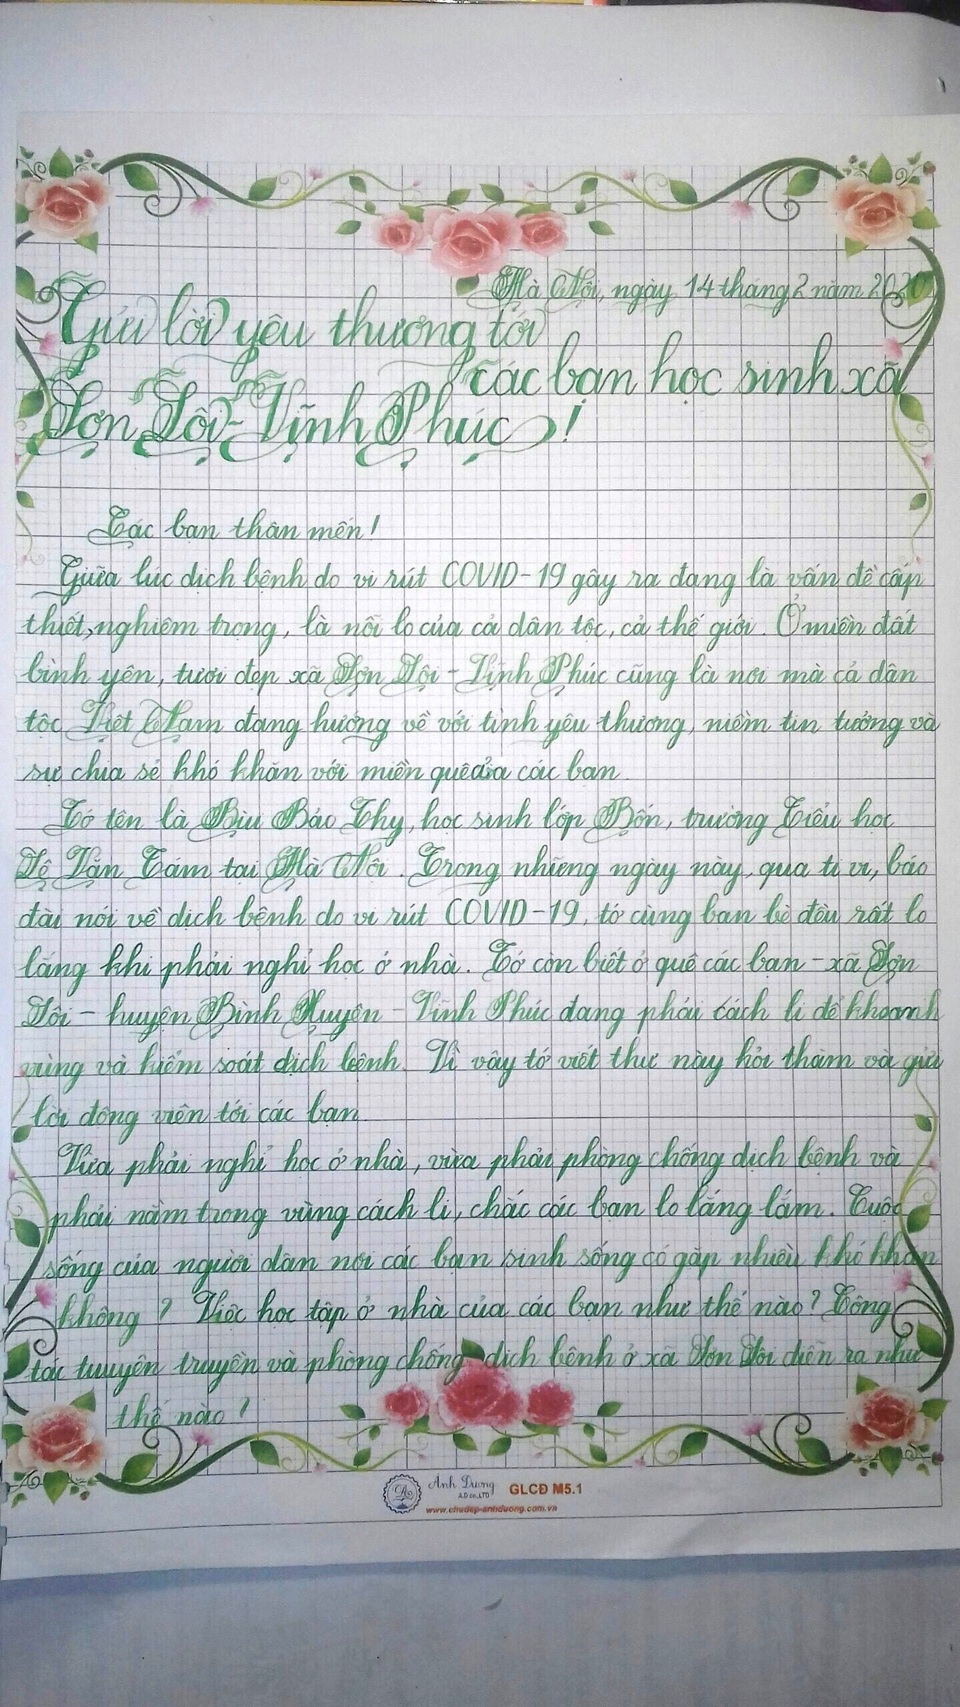 Hà Nội, ngày 14 tháng 2 năm 2020
Gửi lời yêu thương tới
các bạn học sinh xã
Sơn Lôi - Vĩnh Phúc!
Các bạn thân mến!
Giữa lúc dịch bệnh do vi rút COVID-19 gây ra đang là vấn đề cấp
thiết, nghiêm trọng, là nỗi lo của cả dân tộc, cả thế giới. Ở miền đất
bình yên, tươi đẹp xã Sơn Lôi - Vĩnh Phúc cũng là nơi mà cả dân
tộc Việt Nam đang hướng về với tình yêu thương, niềm tin tưởng và
sự chia sẻ khó khăn với miền quê của các bạn.
Tớ tên là Bùi Bảo Thy, học sinh lớp Bốn, trường Tiểu học
Lê Văn Tám tại Hà Nội. Trong những ngày này, qua ti vi, báo
đài nói về dịch bệnh do vi rút COVID-19, tớ cùng bạn bè đều rất lo
lắng khi phải nghỉ học ở nhà. Tớ còn biết ở quê các bạn - xã Sơn
Lôi - huyện Bình Xuyên - Vĩnh Phúc đang phải cách li để khoanh
vùng và kiểm soát dịch bệnh. Vì vậy tớ viết thư này hỏi thăm và gửi
lời động viên tới các bạn.
Vừa phải nghỉ học ở nhà, vừa phải phòng chống dịch bệnh và
phải nằm trong vùng cách li, chắc các bạn lo lắng lắm. Cuộc
sống của người dân nơi các bạn sinh sống có gặp nhiều khó khăn
không? Việc học tập ở nhà của các bạn như thế nào? Công
tác tuyên truyền và phòng chống dịch bệnh ở xã Sơn Lôi diễn ra như
thế nào?
Anh Dương
A.D co.,LTD
GLCĐ M5.1
www.chudep-anhduong.com.vn